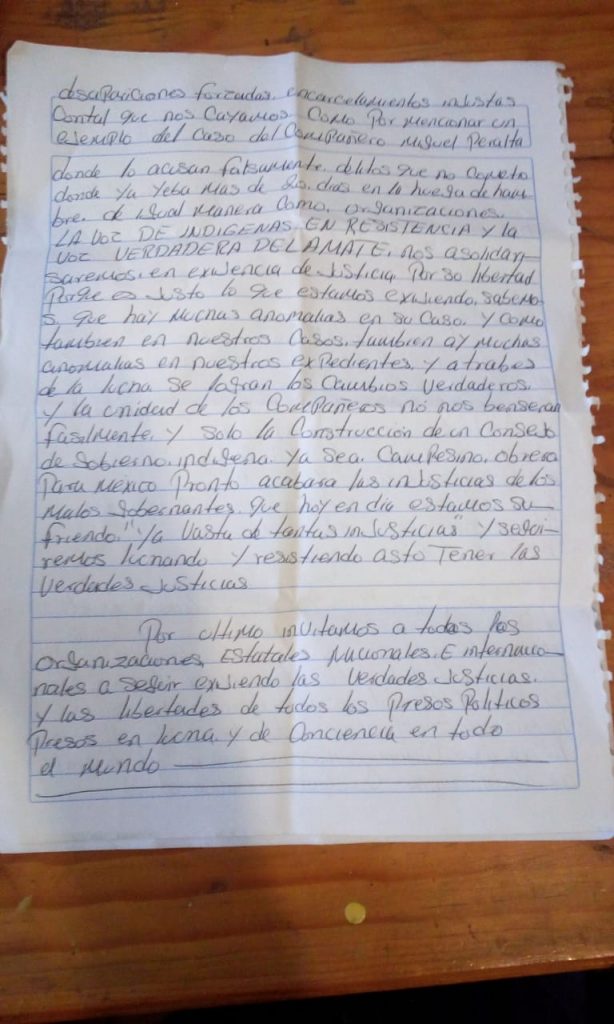 desapariciones forzadas, encarcelamientos injustas
Contal que nos Cayamos Como Por mencionar un
ejemplo del Caso del Compañero Miguel Peralta
donde lo acusan falsamente, delitos que no Cometio
donde ya yeba mas de 20, dias en la huega de ham-
bre, de igual manera Como, organizaciones,
LA VOZ DE INDIGENAS EN RESISTENCIA y la
VOZ VERDADERA DEL AMATE, nos asolidari-
saremos, en exijencia de Justicia, Por so libertad
Porque es Justo lo que estamos exijiendo, sabemo-
s, que hay Muchas anomalias en su Caso, y Como
tambien en nuestros Casos, tambien ay Muchas
anomalias en nuestros expedientes, y atrabes
de la lucha se logran los Cambios Verdaderos,
y la unidad de los Compañeros no nos benseran
fasilmente, y solo la Construcción de un Consejo
de Gobierno, indigena, ya sea, Campesino, obrero
Para Mexico Pronto acabara las injusticias de los
Malos Gobernantes, que hoy en dia estamos su-
friendo, "ya Vasta de tantas injusticias" y segui-
remos luchando y resistiendo asta Tener las
Verdades Justicias
Por ultimo invitamos a todas las
organizaciones, Estatales Nacionales, E internacio-
nales a seguir exijiendo las Verdades Justicias,
y las libertades de todos los Presos Politicos
Presos en lucha y de Conciencia en todo
el Mundo